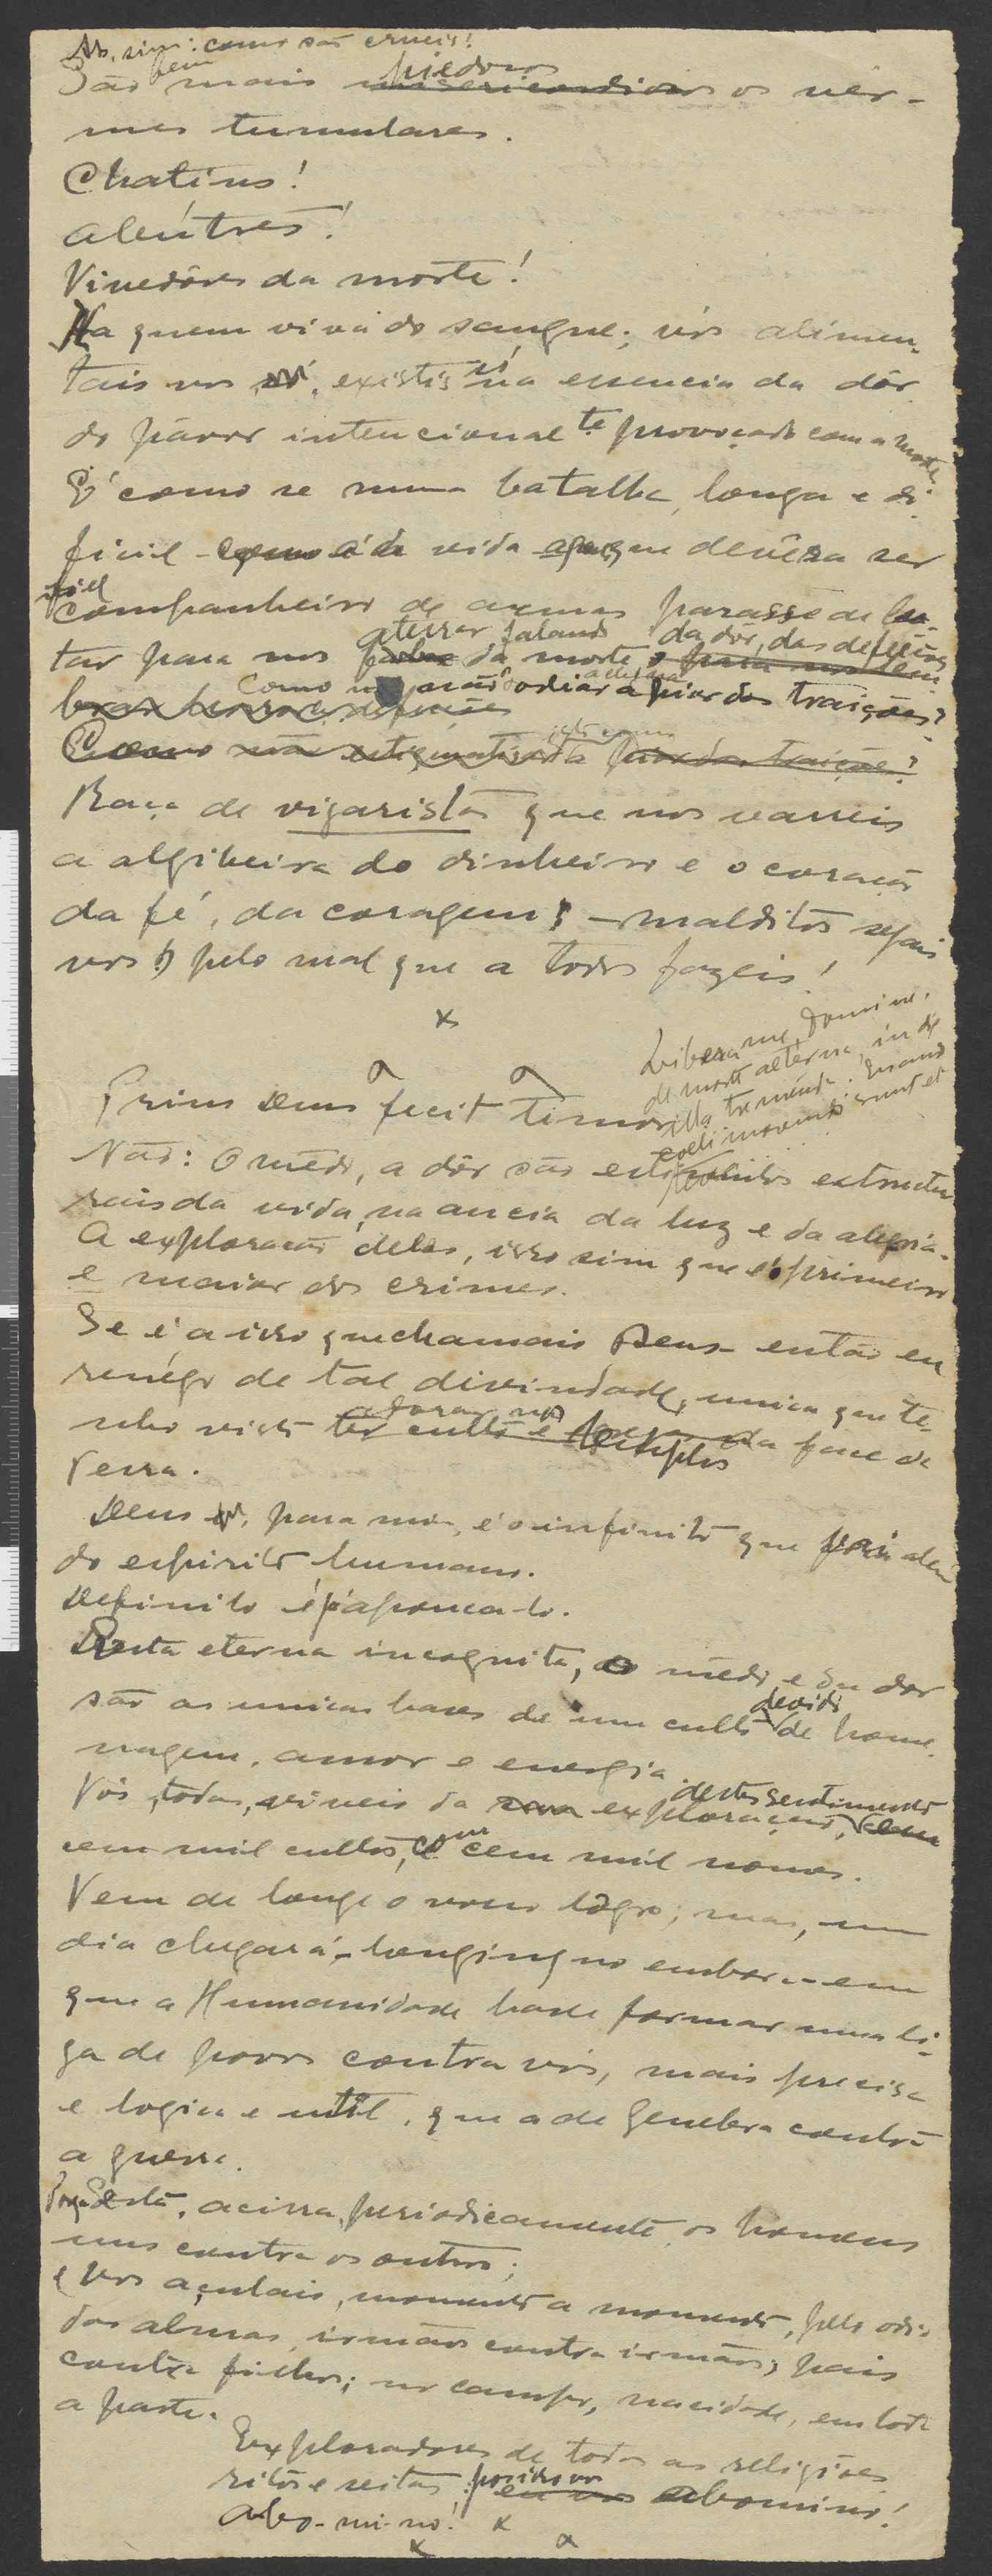 Ah, sim: como são crueis!
São bem mais piedosos misericordiosos os vér-
mes tumulares.
Chatins!
abutres!
Vinedôres da morte!
Ha quem viva do sangue; vós alimen-
tais vos, existis só na essencia da dôr
do pávor intencionalte provocado com a morte
E' como se numa batalha longa e di-
ficil como é da vida aquem devêra ser
fiel companheiro de armas parasse de lu-
tar para nos aterrar falando da morte, da dôr, das defeções
Como não odiar a peior das traições?
Como não a peior das traições?
Raça de vigaristas que nos varreis
a algibeira do dinheiro e o coração
da fé, da coragem; – malditos sejais
vós pelo mal que a todos fazeis!
x
Libera me, Domine,
de morte aeterna, in die
illa tremenda. Quando
coeli movendi sunt et
Primus Deus fecit timor
Não: O mêdo, a dôr são estimulos estructu-
rais da vida, na ancia da luz e da alegria.
A exploração deles, isso sim que é o primeiro
e maior dos crimes.
Se é a isso que chamais Deus – então eu
renégo de tal divindade, unica que te-
nho visto adorar nos ter culto e templos na face da
Terra.
Deus, para mim, é o infinito que foi além
do espirito humano.
Definito é já pouca-lo.
Desta eterna incognita, o mêdo e a dor
são as unicas bases de um culto devido de home-
nagem, amor e energia.
Vós, todos, viveis da exploração destes sentimentos, com
cem mil cultos, com cem mil nomes.
Vem de longe o vosso lôgro; mas, um
dia chegará – longinquo embora – em
que a Humanidade hade formar uma li-
ga de povos contra vós, mais precisa
e logica e util, que a de Genebra contra
a guerra.
Porque Esta, acirra, periodicamente, os homens
uns contra os outros;
e Vós açulais, momento a momento, pelo odio
das almas, irmãos contra irmãos; pais
contra filhos; no campo, na cidade, em toda
a parte.
Exploradores de todas as religiões
ritos e seitas, por isso vos eu vos abomino!
abo-mi-no!
x
x
x